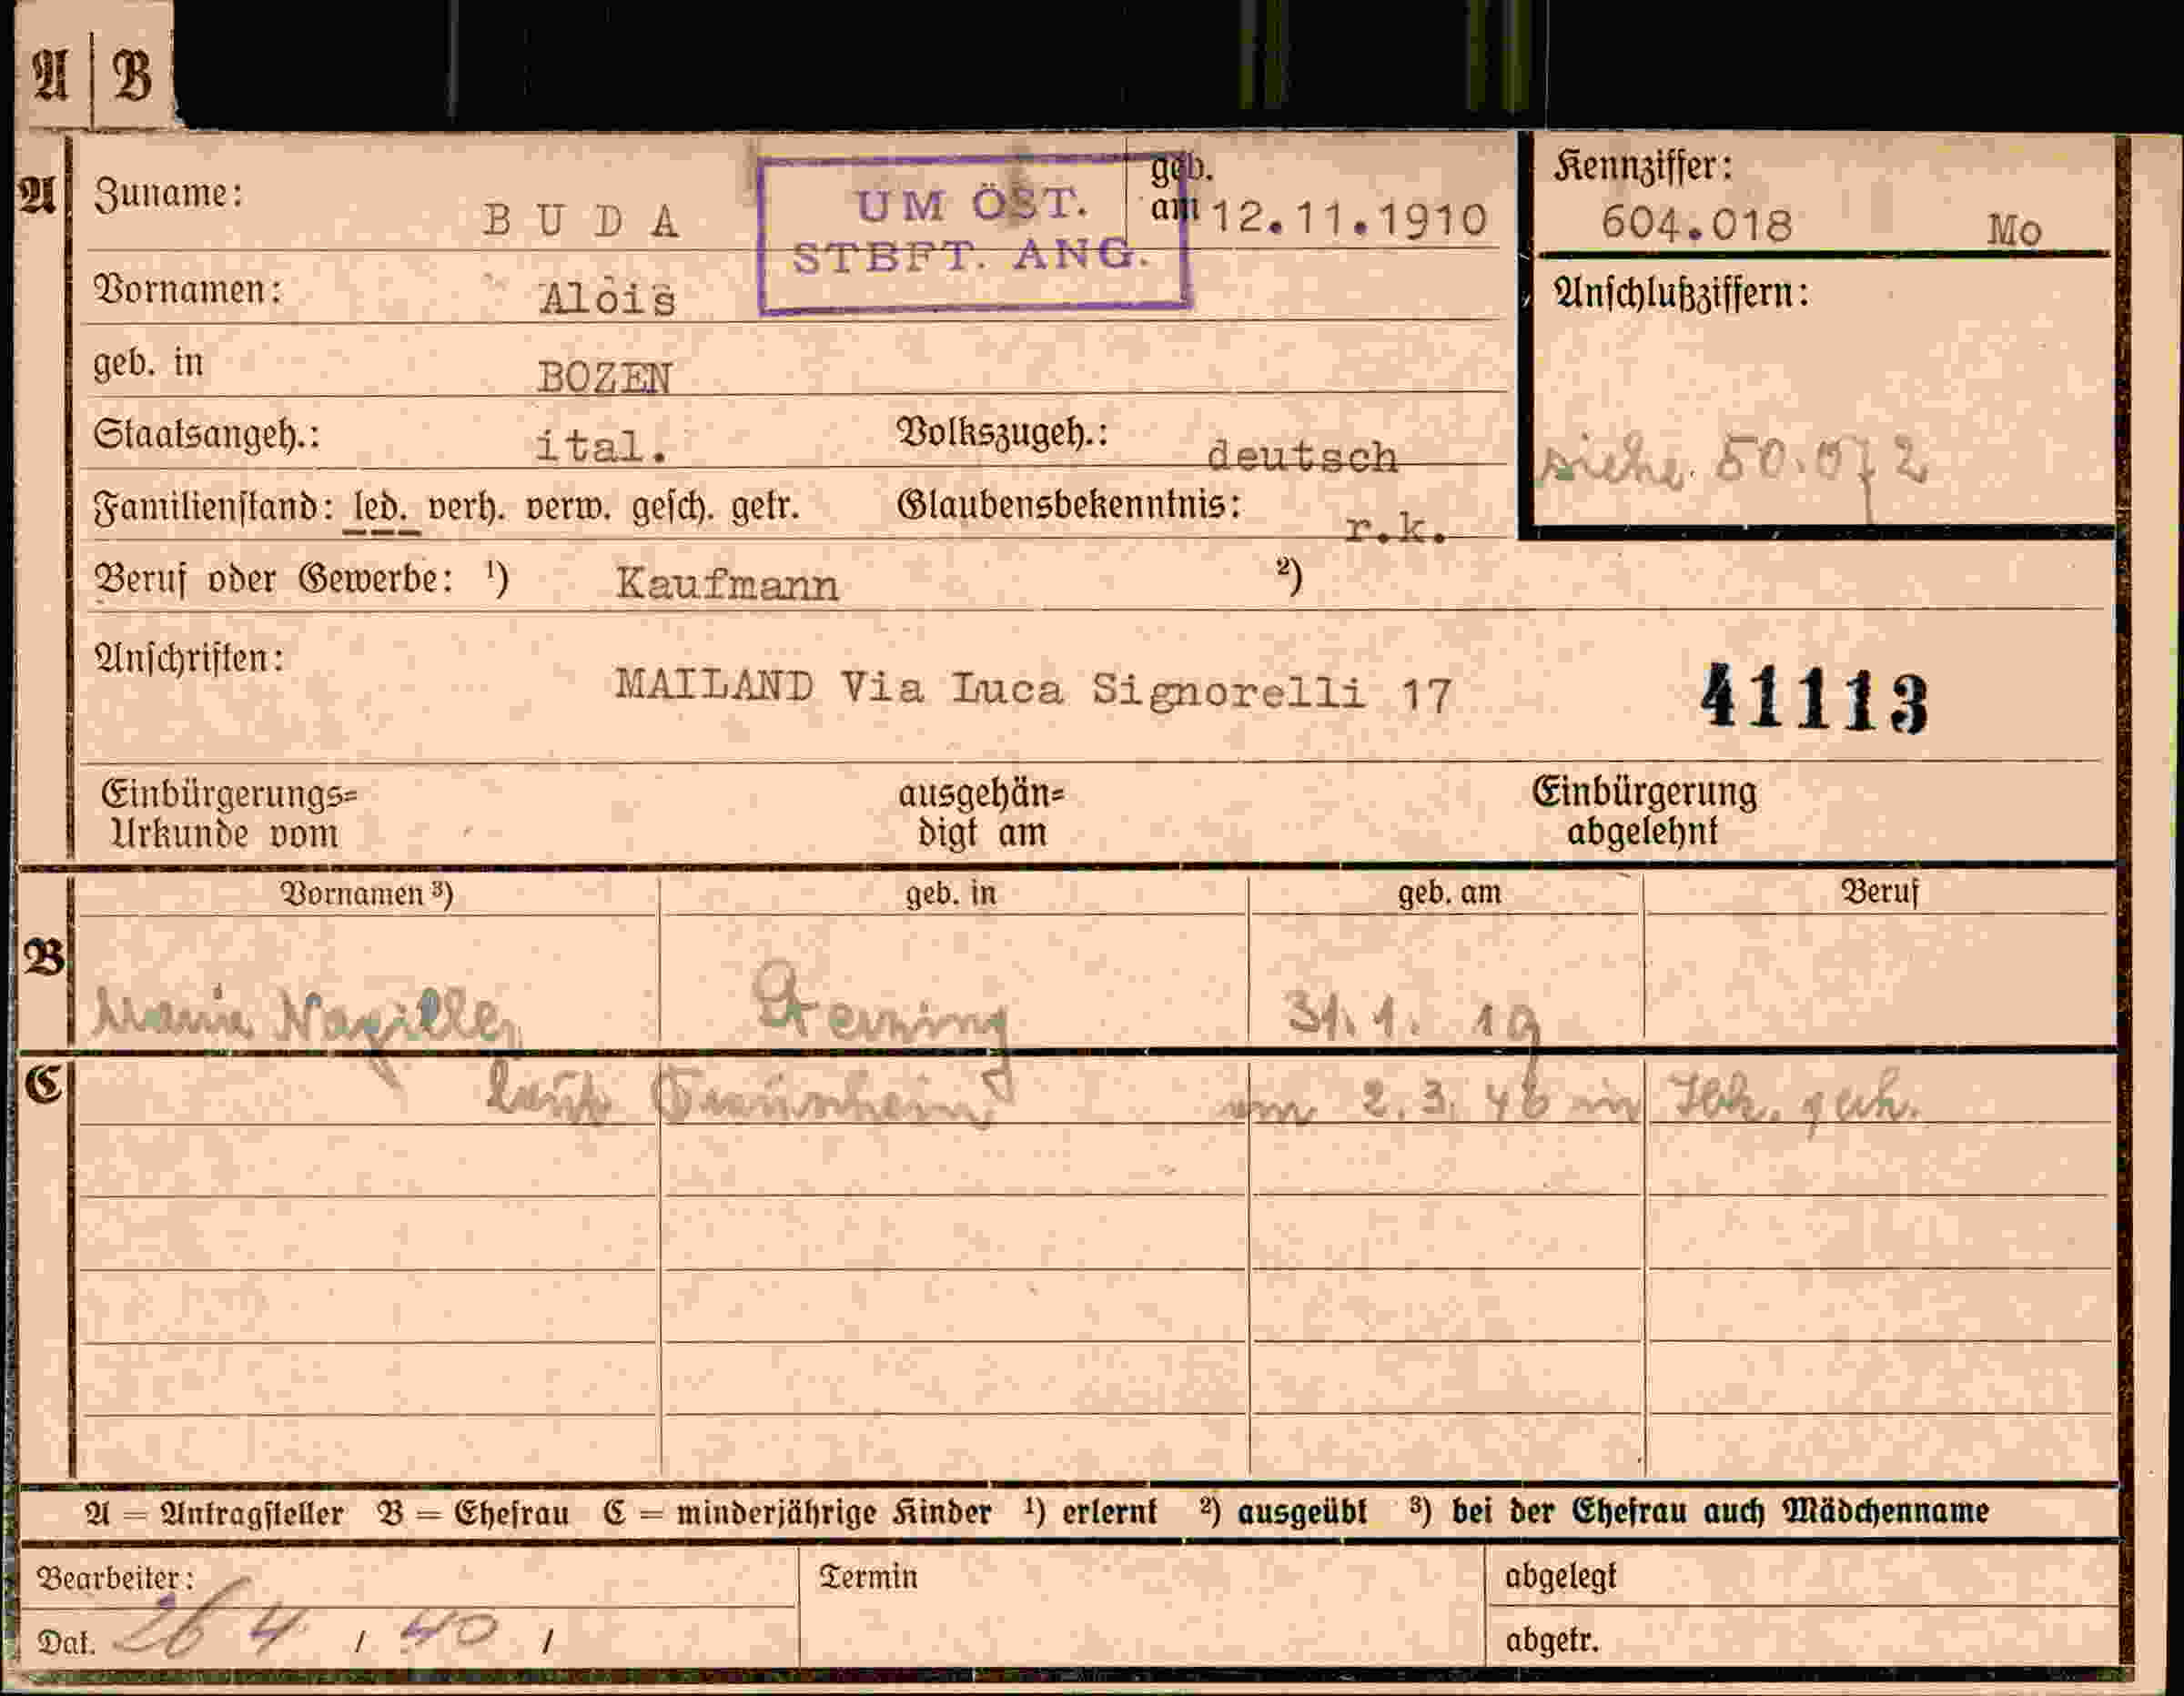 A | B
A
Zuname: BUDA
UM ÖST.
STBFT. ANG.
geb. am 12.11.1910
Kennziffer:
604.018 Mo
Vornamen: Alois
Anschlußziffern:
siehe 50.072
geb. in BOZEN
Staatsangeh.: ital. Volkszugeh.: deutsch
Familienstand: led. verh. verw. gesch. getr. Glaubensbekenntnis: r.k.
Beruf oder Gewerbe: ¹) Kaufmann ²)
Anschriften: MAILAND Via Luca Signorelli 17 41113
Einbürgerungs= ausgehän= Einbürgerung
Urkunde vom digt am abgelehnt
Vornamen ³) geb. in geb. am Beruf
B
Maria Sterzing 31.1. 19
C
laut Trauschein am 2.3.46 in Ibk.
A = Antragsteller B = Ehefrau C = minderjährige Kinder ¹) erlernt ²) ausgeübt ³) bei der Ehefrau auch Mädchenname
Bearbeiter: Termin abgelegt
Dat. 26 4. / 40 / abgetr.